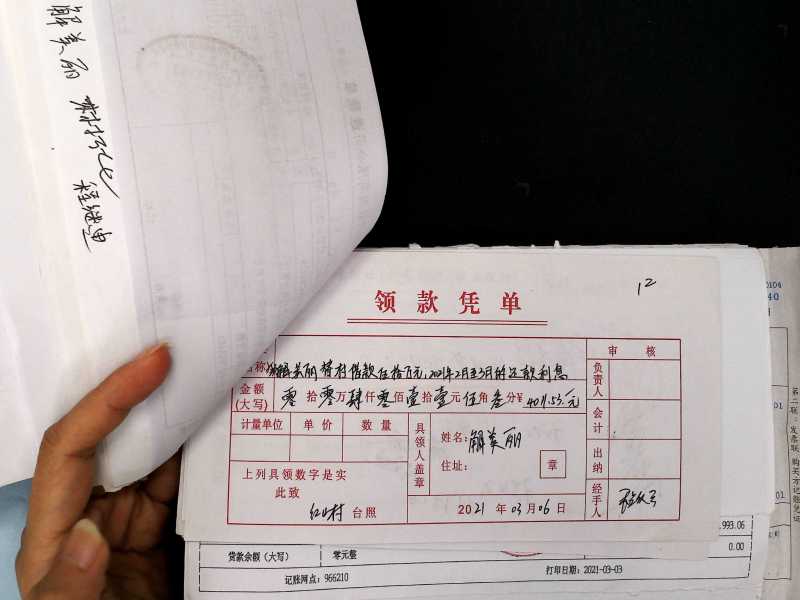 解美丽
程继
12
领款凭单
解美丽替村借款伍拾万元,2021年2月至3月的还款利息
金额(大写) 零拾零万肆仟零佰壹拾壹元伍角叁分¥4011.53元
计量单位 单价 数量
具领人盖章
姓名:解美丽
住址:
章
上列具领数字是实
此致
红山村 台照
2021年03月06日
审核
负责人
会计
出纳
经手人
0104
40
01
01
第二联:发票联 购买方记账凭证
.993.06
0.00
贷款余额(大写) 零元整
记账网点:966210
打印日期:2021-03-03